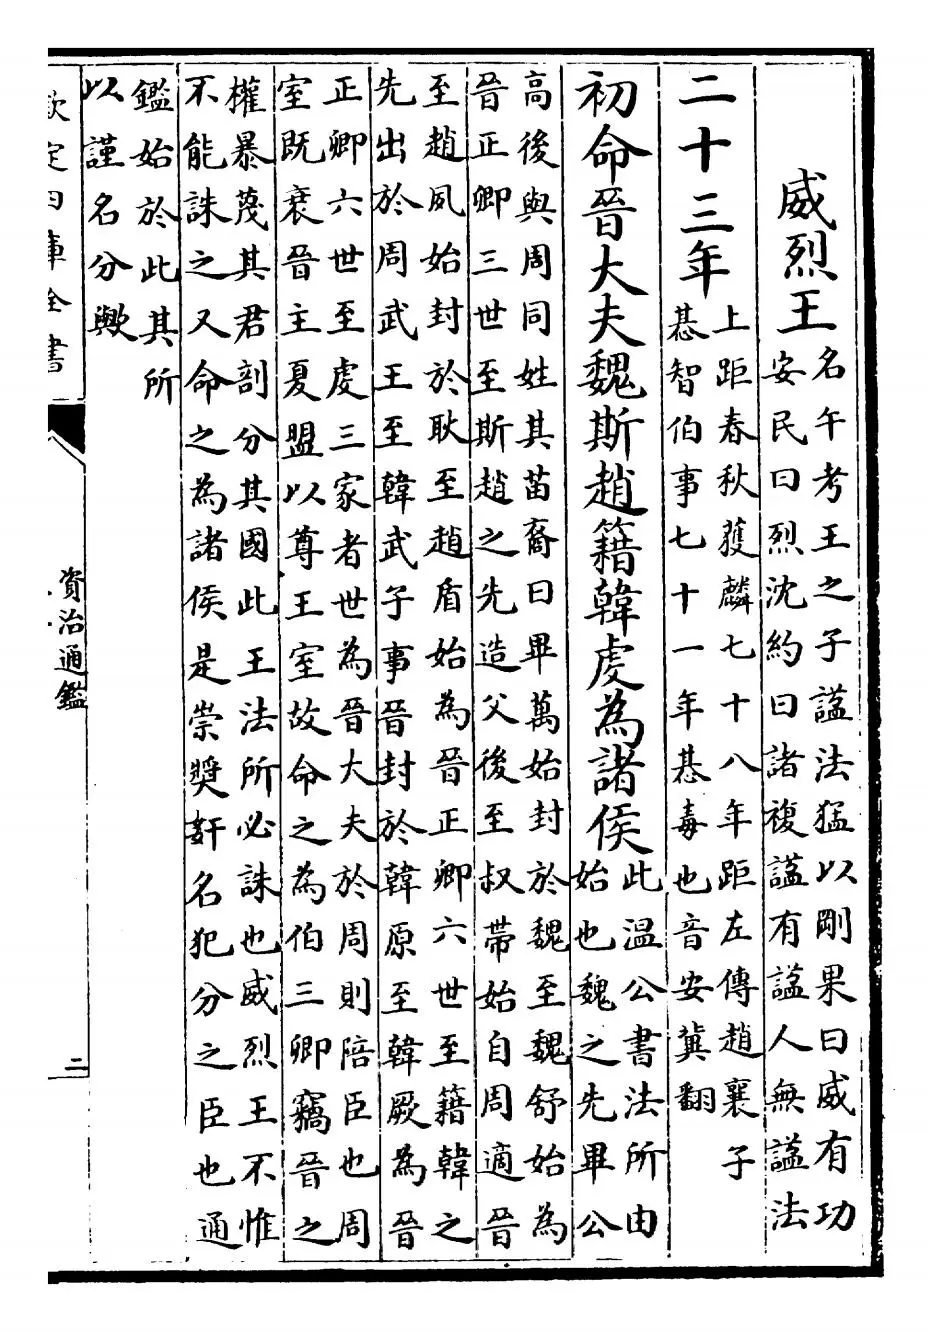 威烈王名午考王之子諡法猛以剛果曰威有功
安民曰烈沈約曰諸複諡有諡人無諡法
二十三年上距春秋獲麟七十八年距左傳趙襄子
惎智伯事七十一年惎毒也音安冀翻
初命晉大夫魏斯趙籍韓虔為諸侯此温公書法所由
始也魏之先畢公
高後與周同姓其苗裔曰畢萬始封於魏至魏舒始為
晉正卿三世至斯趙之先造父後至叔帶始自周適晉
至趙夙始封於耿至趙盾始為晉正卿六世至籍韓之
先出於周武王至韓武子事晉封於韓原至韓厥為晉
正卿六世至虔三家者世為晉大夫於周則陪臣也周
室既衰晉主夏盟以尊王室故命之為伯三卿竊晉之
權暴蔑其君剖分其國此王法所必誅也威烈王不惟
不能誅之又命之為諸侯是崇奬奸名犯分之臣也通
鑑始於此其所
以謹名分歟
欽定四庫全書
資治通鑑
二